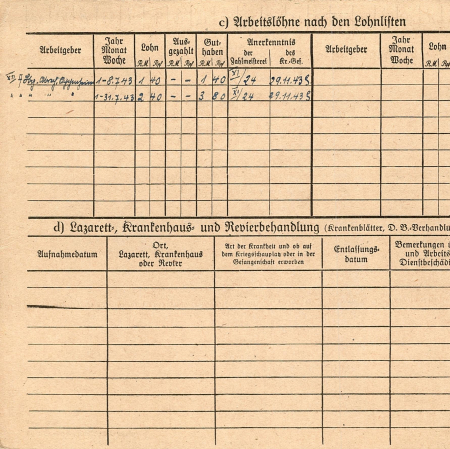 c) Arbeitslöhne nach den Lohnlisten
Arbeitgeber Jahr Monat Woche Lohn R.M Rpf Ausgezahlt R.M Rpf Guthaben R.M Rpf Anerkenntnis der Zahlmeisterei des Kr.-Gef. Arbeitgeber Jahr Monat Woche Lohn R.M Rpf
1-8.7.43 1 40 - - 1 40 XI/24 29.11.43
" " " " 1-31.7.43 2 40 3 80 XI/24 29.11.43
d) Lazarett-, Krankenhaus- und Revierbehandlung (Krankenblätter, D. B.-Verhandlu
Aufnahmedatum Ort, Lazarett, Krankenhaus oder Revier Art der Krankheit und ob auf dem Kriegsschauplatz oder in der Gefangenschaft erworben Entlassungsdatum Bemerkungen ü und Arbeits Dienstbeschädi